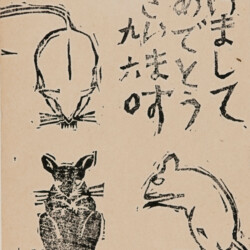 けまして
めでとう
ざいます
九六〇